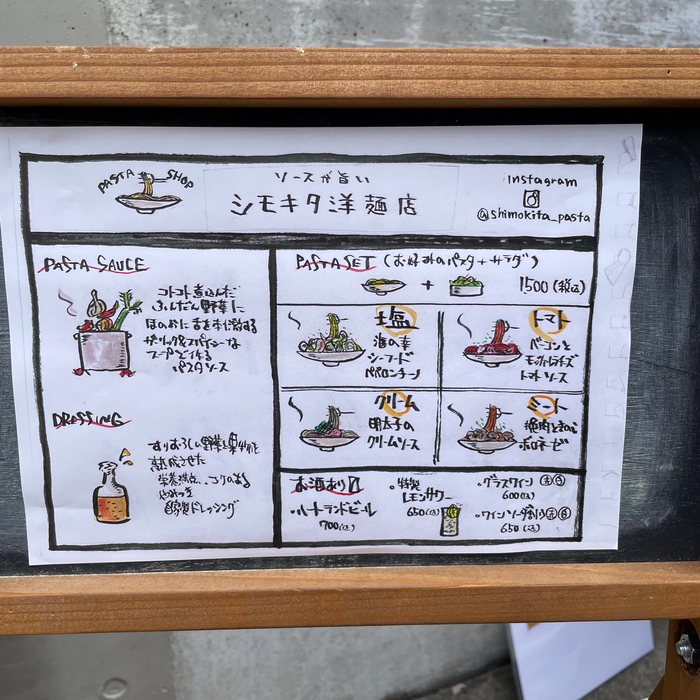 PASTA SHOP
ソースが旨い
シモキタ洋麺店
Instagram
@shimokita_pasta
PASTA SAUCE
コトコト煮込んだ
ふんだん野菜に
ほのおに舌を本で刺する
ガーリック&スパイシーな
スープで作る
パスタソース
DRESSING
すりおろし野菜と果物を
熟成させた
栄養満点、コクのある
自家製ドレッシング
PASTA SET (お好みのパスタ+サラダ)
+
1,500(税込)
塩
海の幸
シーフード
ペペロンチーノ
トマト
ベーコンと
モッツァレラチーズ
トマトソース
クリーム
明太子の
クリームソース
ミート
挽肉ときのこ
ボロネーゼ
お酒あり〼
・ハートランドビール
700(込)
・特製
レモンサワー
650(込)
・グラスワイン 赤 白
600(込)
・ワインソーダ割り 赤 白
650(込)